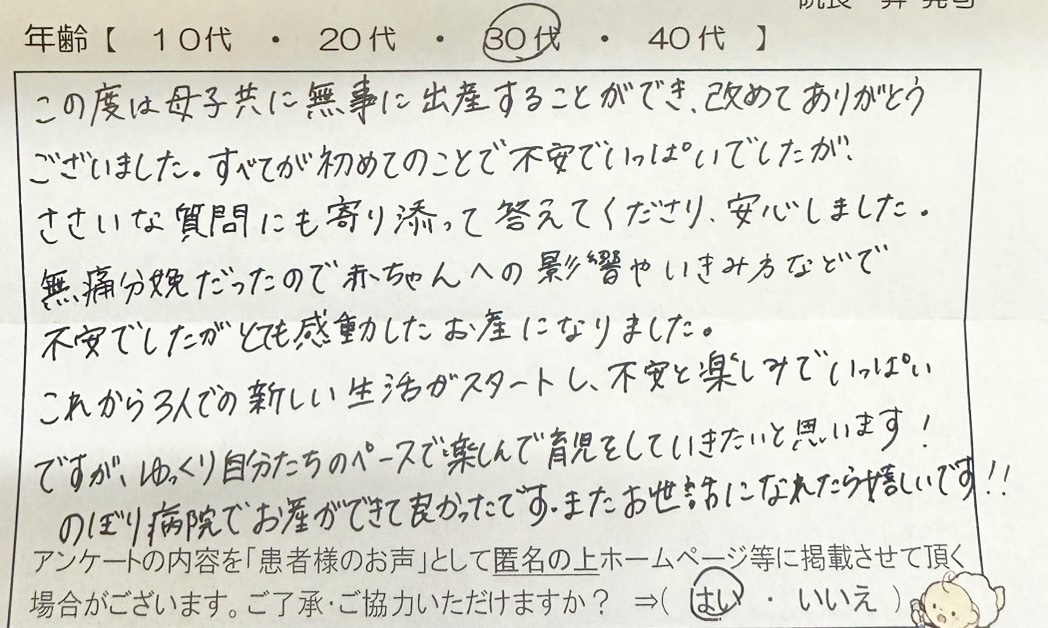 年齢【 10代 ・ 20代 ・ 30代 ・ 40代 】
この度は母子共に無事に出産することができ、改めてありがとう
ございました。すべてが初めてのことで不安でいっぱいでしたが、
ささいな質問にも寄り添って答えてくださり、安心しました。
無痛分娩だったので赤ちゃんへの影響やいきみ方などで
不安でしたがとても感動したお産になりました。
これから3人での新しい生活がスタートし、不安と楽しみでいっぱい
ですが、ゆっくり自分たちのペースで楽しんで育児をしていきたいと思います!
のぼり病院でお産ができて良かったです。またお世話になれたら嬉しいです!!
アンケートの内容を「患者様のお声」として匿名の上ホームページ等に掲載させて頂く
場合がございます。ご了承・ご協力いただけますか? ⇒( はい ・ いいえ )